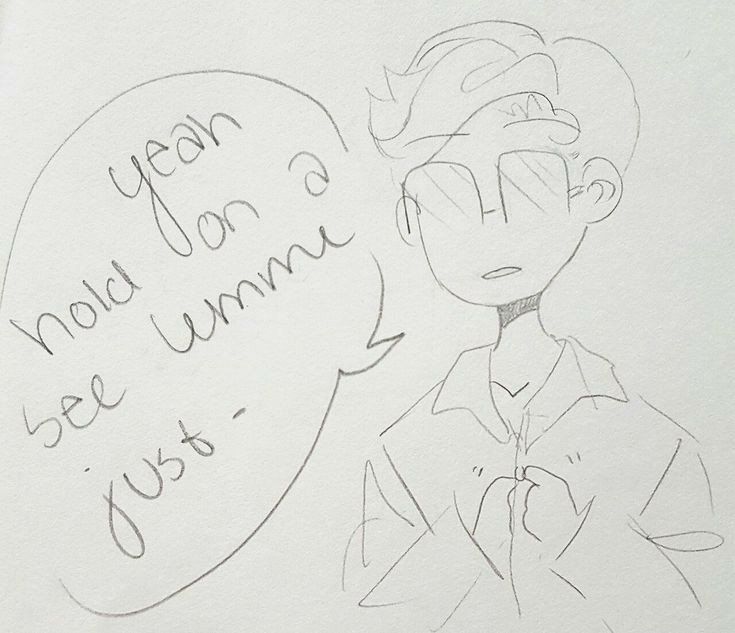 yeah
hold on a
see lemme
just-